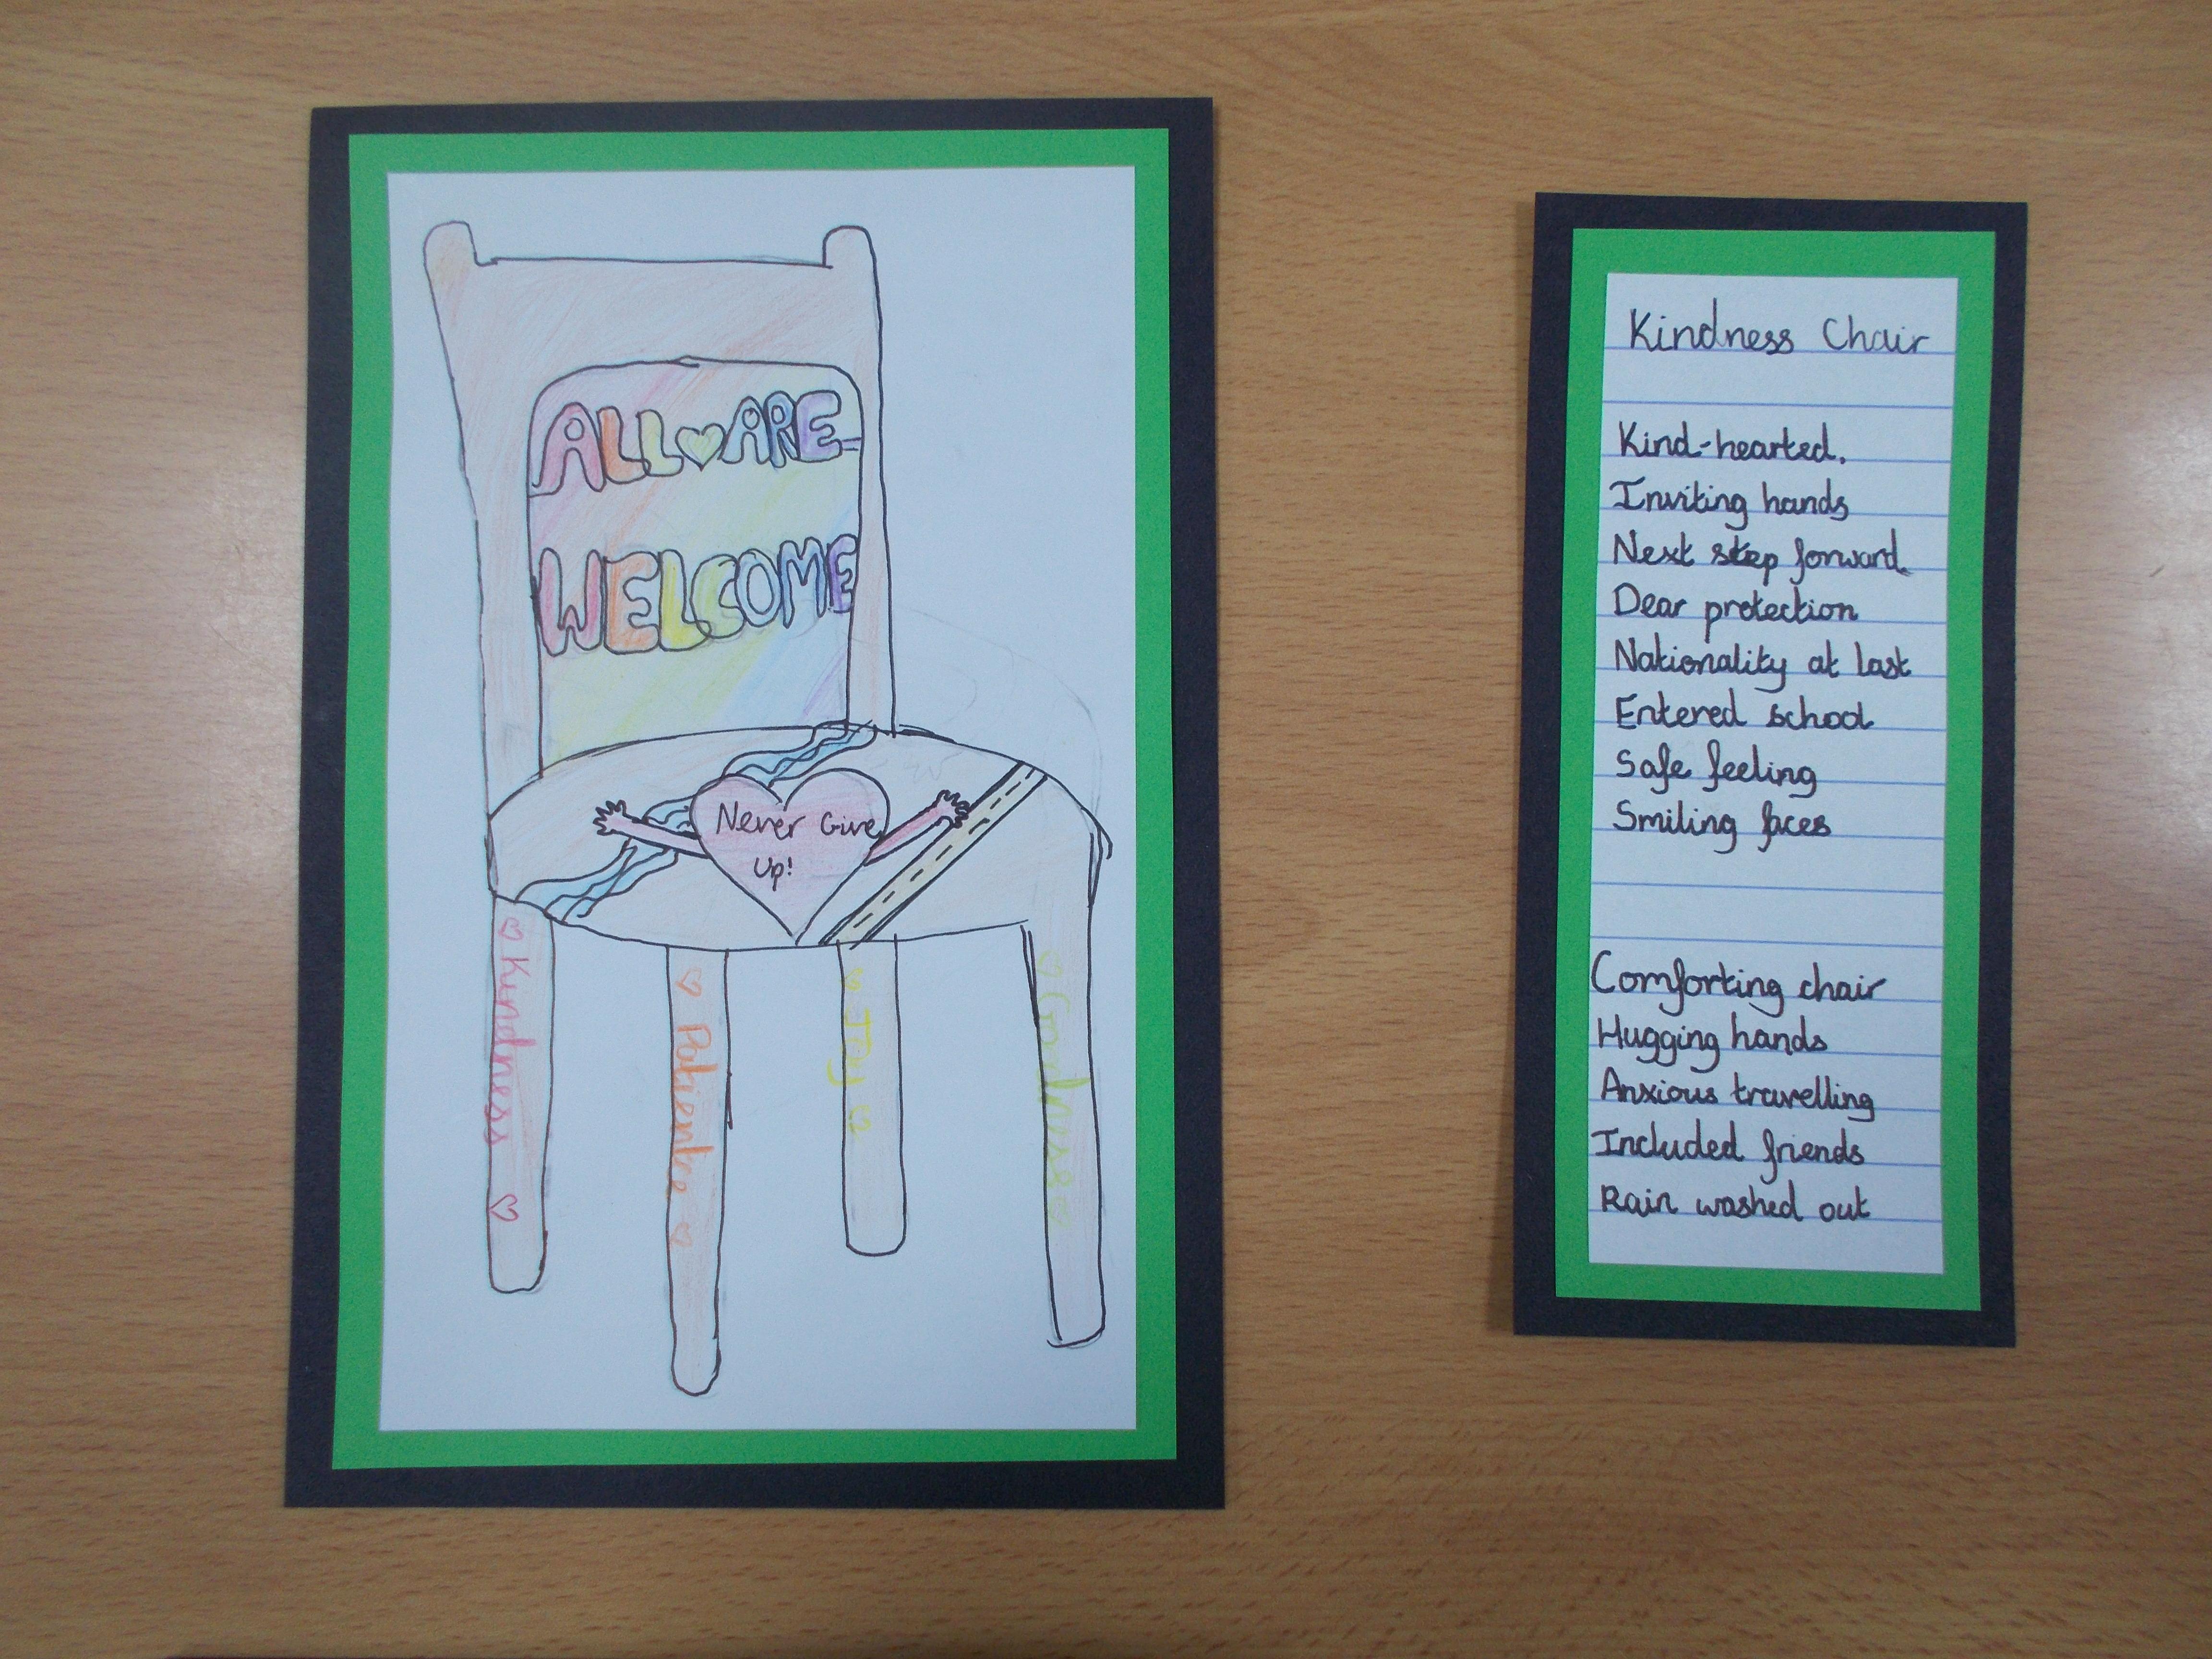 ALL ARE
WELCOME
Never Give
Up!
Kindness
Patience
Joy
Goodness
Kindness Chair
Kind-hearted.
Inviting hands
Next step forward
Dear protection
Nationality at last
Entered school
Safe feeling
Smiling faces
Comforting chair
Hugging hands
Anxious travelling
Included friends
Rain washed out